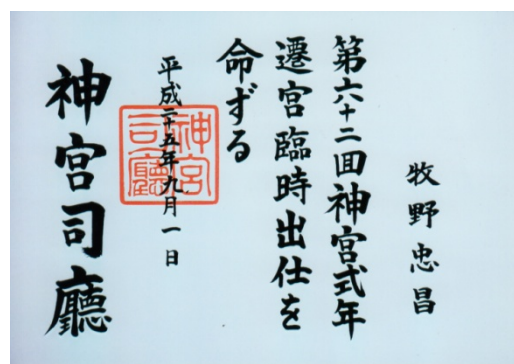 牧野忠昌
第六十二回神宮式年
遷宮臨時出仕を
命ずる
平成二十五年九月一日
神宮司廳
神宮
司廳